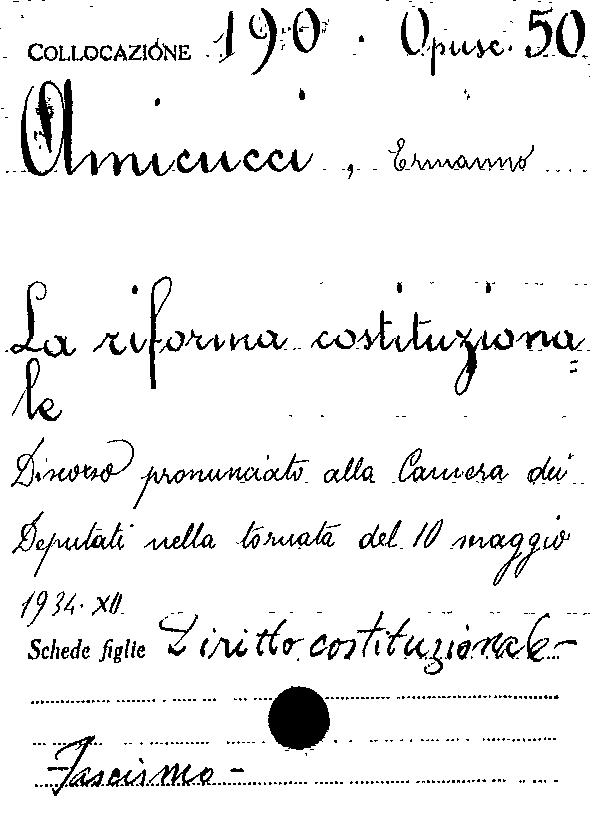 COLLOCAZIONE 190 . Opusc. 50
Amicucci, Ermanno
La riforma costituziona=
le
Discorso pronunciato alla Camera dei
Deputati nella tornata del 10 maggio
1934. XII.
Schede figlie Diritto costituzionale -
- Fascismo -